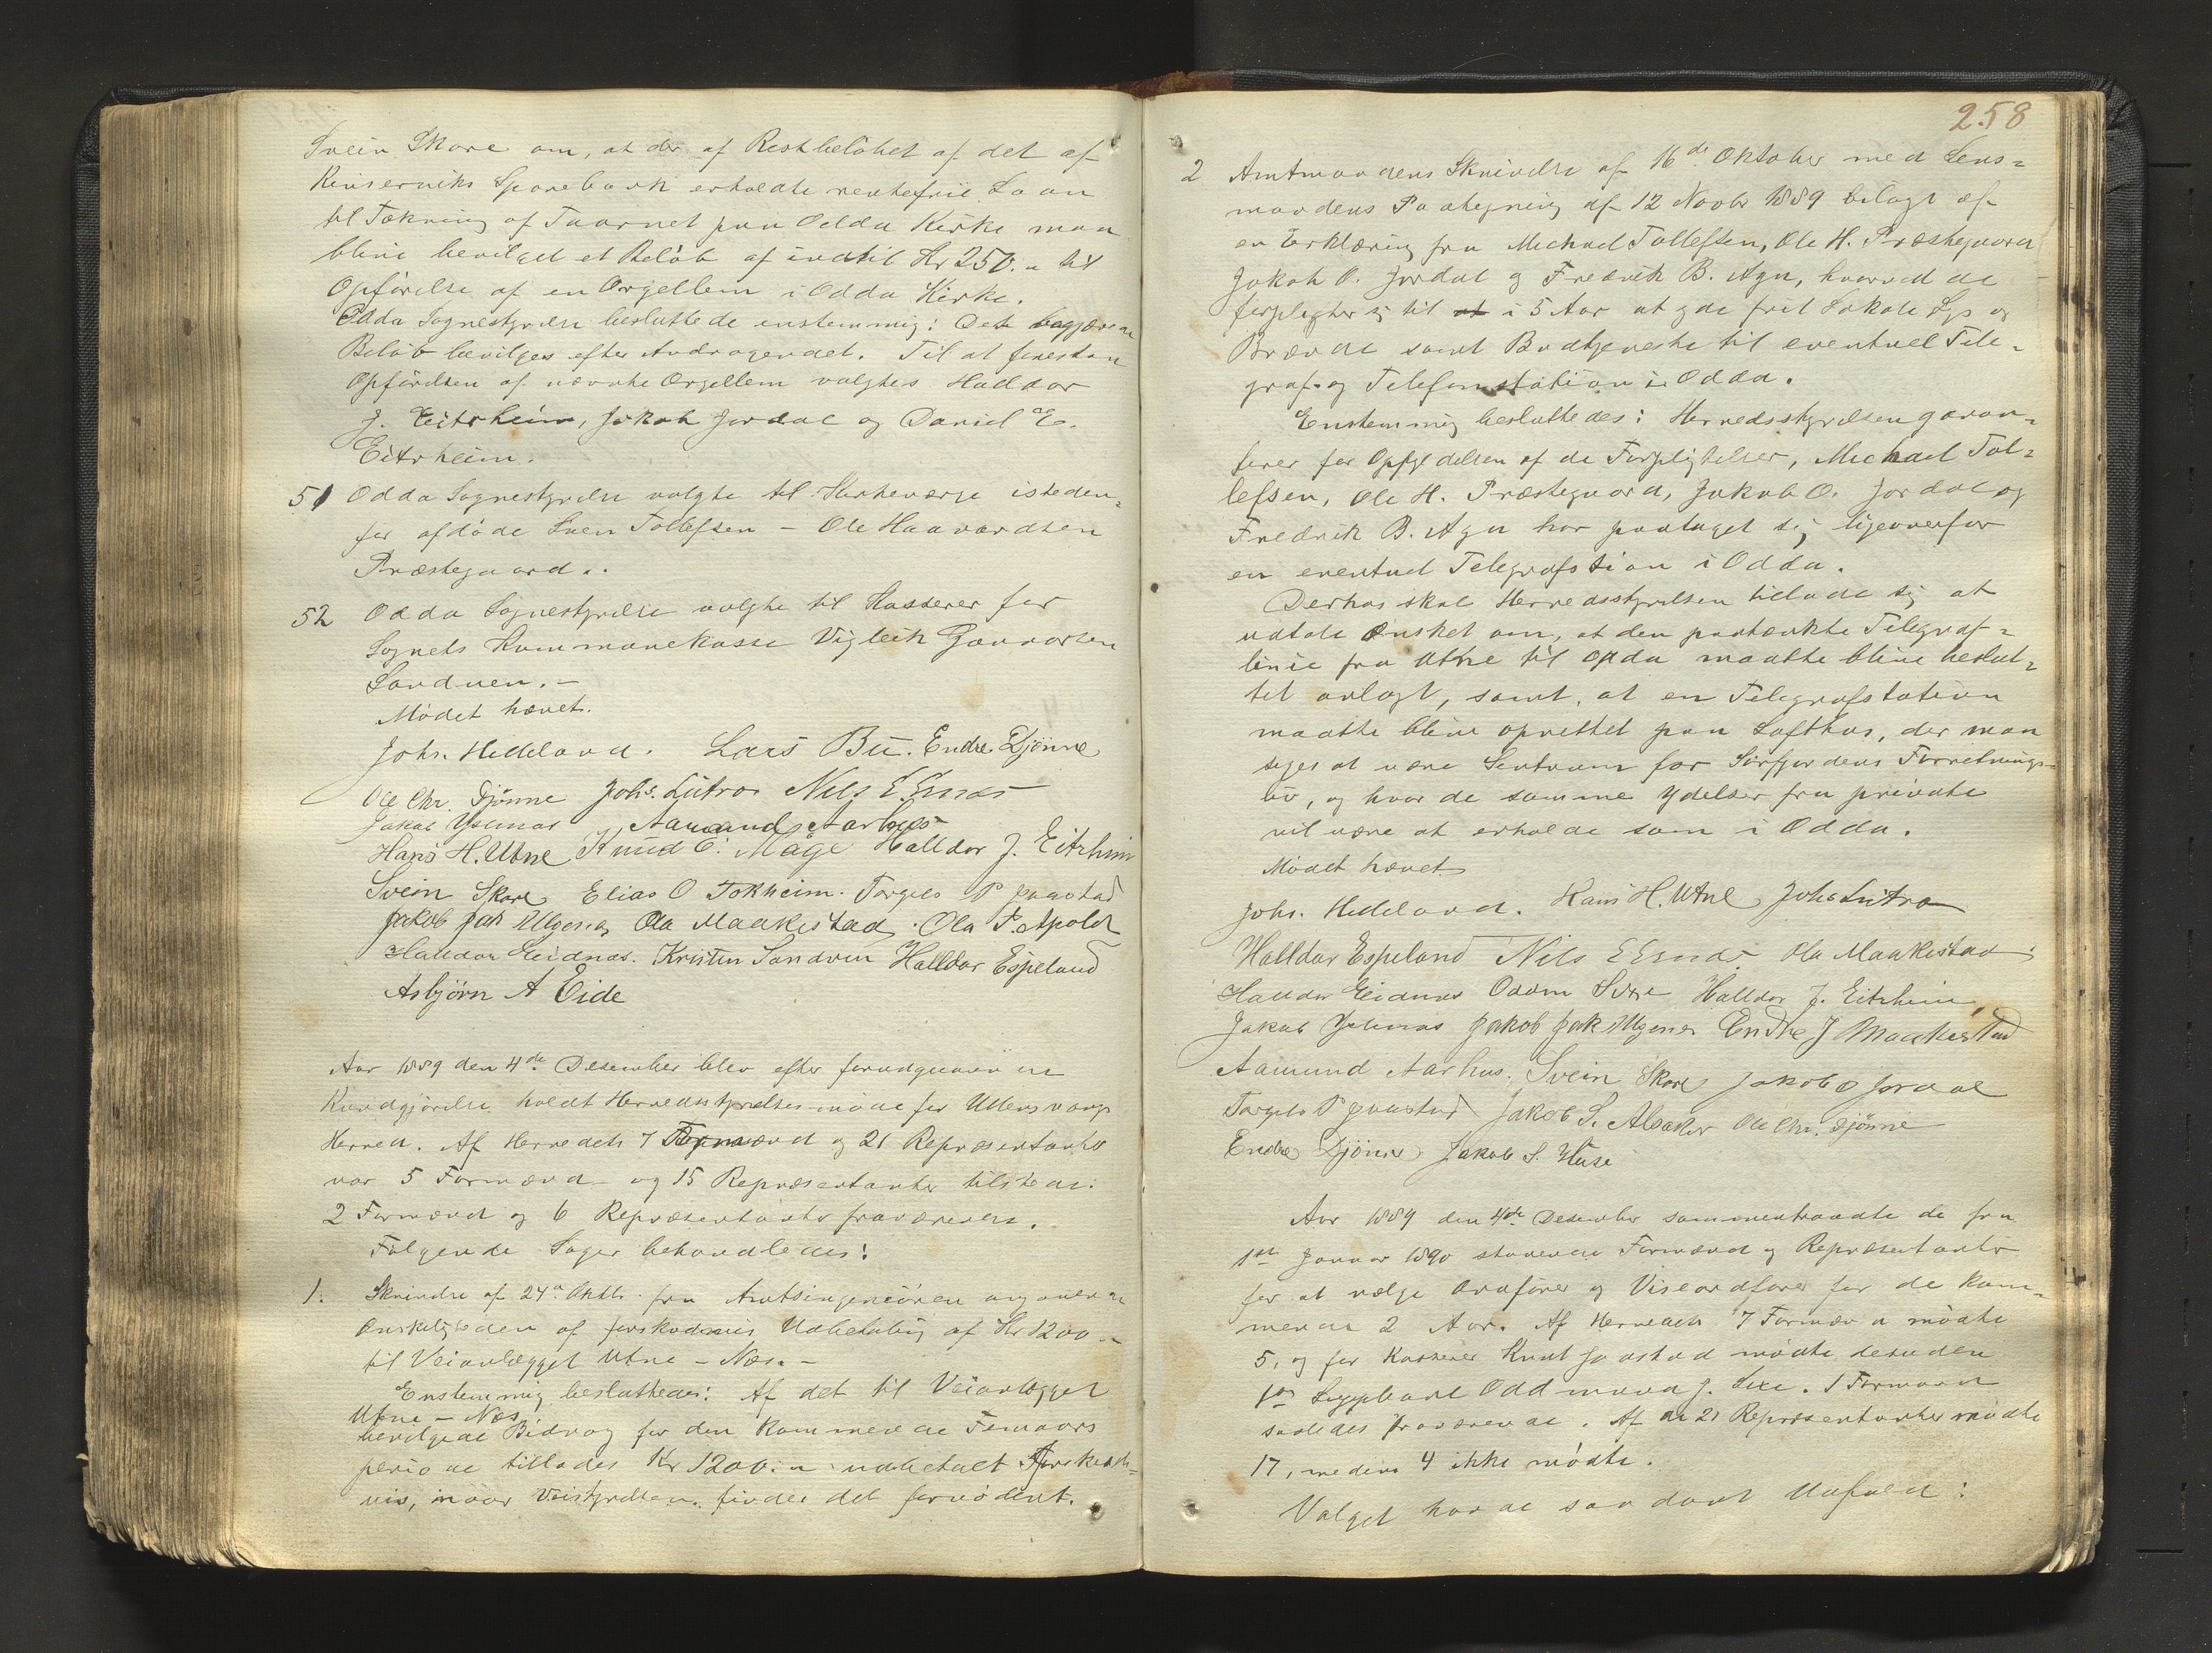 Svein Skare om, at der af Restbeløbet af det af
Kinserviks Sparebank erholdte rentefrie Laan
til Tækning af Taarnet paa Odda Kirke maa
blive bevilget et Beløb af indtil Kr 250.. til
Opførelse af en Orgellem i Odda Kirke.
Odda Sognestyrelse besluttede enstemmig: Det begjærede
Beløb bevilges efter Andragendet. Til at forestaa
Opførelsen af nævnte Orgellem valgtes Haldor
J. Eitrheim, Jakob Jordal og Daniel E.
Eitrheim.
51 Odda Sognestyrelse valgte til Kirkeværge isteden=
for afdøde Sven Tollefsen – Ole Haavardsen
Præstegaard..
52 Odda Sognestyrelse valgte til Kasserer for
Sognets Kommunekasse Vigleik
Sandven. –
Mødet hævet.
Johs. Hedeland. Lars Bu. Endre Djönne
Ole Chr. Djönne Johs. Lutro Nils E. Ernæs
Jakob Aamund Aarhus
Hans H. Utne Knud E. Måge Halldor J. Eitrheim
Svein Skare Elias O Tokheim. Torgils P Jaastad
Jakob Jak Ulgenes Ola Maakestad. Ola P. Apold
Haldor Eidnes. Kristen Sandven Halldor Espeland
Asbjörn A Eide
Aar 1889 den 4de Desember blev efter forudgaaende
Kundgjørelse holdt Herredsstyrelsesmøde for Ullensvangs
Herred. Af Herredets 7 Formænd og 21 Repræsentanter
var 5 Formænd og 15 Repræsentanter tilstede.
2 Formænd og 6 Repræsentanter fraværende.
Følgende Sager behandledes:
1. Skrivelse af 24de Oktbr. fra Amtsingeniøren angaaende
Ønskeligheden af forskudsvis Udbetaling af Kr 1200..
til Veianlægget Utne – Næs. –
Enstemmig besluttedes: Af det til Veianlægget
Utne – Næs
bevilgede Bidrag for den kommende Femaars
periode tillades Kr 1200.. udbetalt forskuds=
vis, naar Veistyrelsen finder det fornødent.
258
2 Amtmandens Skrivelse af 16de Oktober med Lens=
mandens Paategning af 12 Novbr 1889 bilagt af
en Erklæring fra Michael Tollefsen, Ole H. Præstegaard
Jakob O. Jordal og Fredrik B. Aga, hvorved de
forpligter sig til at i 5 Aar at yde frit Lokale Lys og
Brænde samt Budtjeneste til eventuel Tele=
graf- og Telefonstation i Odda.
Enstemmig besluttedes: Herredsstyrelsen garan=
terer for Opfyldelsen af de Forpligtelser, Michael Tol=
lefsen, Ole H. Præstegaard, Jakob O. Jordal og
Fredrik B. Aga har paataget sig ligeoverfor
en eventuel Telegrafstion i Odda.
Derhos skal Herredsstyrelsen tillade sig at
udtale Ønsket om, at den paatænkte Telegraf=
linie fra Utne til Odda maatte blive beslut=
tet anlagt, samt, at en Telegrafstation
maatte blive oprettet paa Lofthus, der maa
siges at være Sentrum for Sørfjordens Forretnings=
liv, og hvor de samme Ydelser fra private
vil være at erholde som i Odda.
Mødet hævet
Johs. Hedeland. Hans H. Utne Johs Lutro
Halldor Espeland Nils E Ernæs Ola Maakestad
Haldor Eidnes Oddm Sexe Halldor J. Eitrheim
Jakob Jakob Jak Ulgenes Endre J Maakestad
Aamund Aarhus. Svein Skare Jakob O Jordal
Torgils P Jaastad Jakob S. Alsaker Ole Chr. Djönne
Endre Djönne Jakob S. Huse
Aar 1889 den 4de Desember sammentraadte de fra
1ste Januar 1890 staaende Formænd og Repræsentanter
for at vælge Ordfører og Viseordfører for de kom=
mende 2 Aar. Af Herredets 7 Formænd mødte
5, og for Kasserer Knut Jaastad mødte desuden
1ste Suppleant Oddmund J. Sexe. 1 Formand
saaledes fraværende. Af de 21 Repræsentanter mødte
17, medens 4 ikke mødte.
Valget havde saadant Udfald: